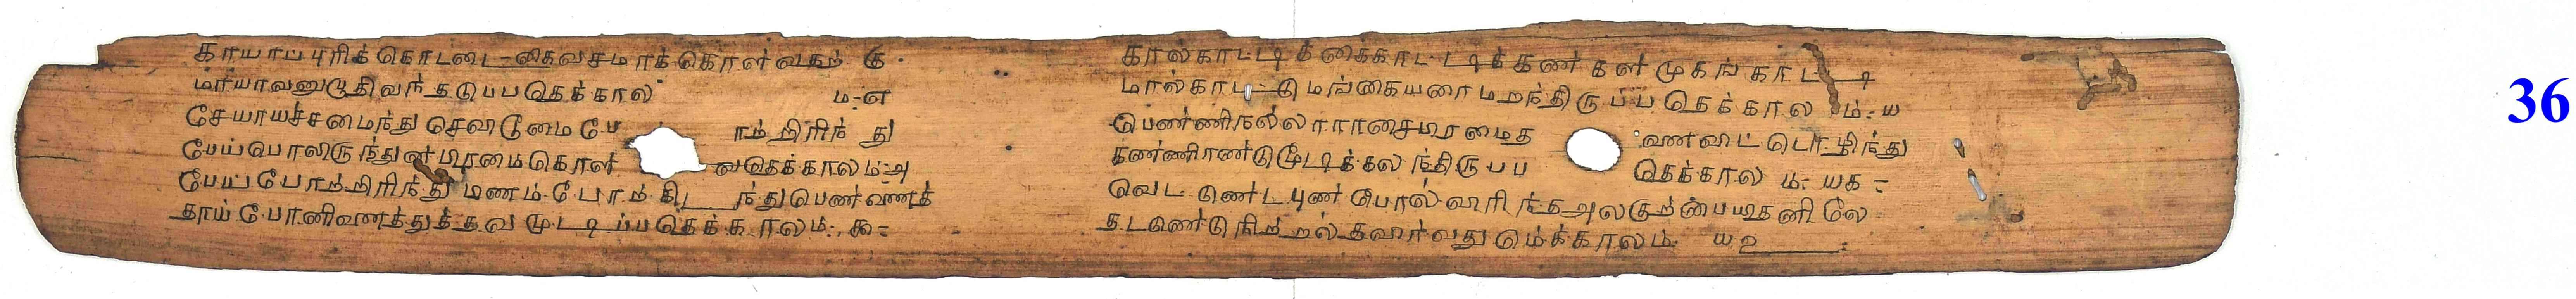 காயாப்புரிக் கொட்டை கைவசமாக் கொள்வதற் கு
மாயாவனுபூதி வந்தடுப்பதெக்கால் ம-எ
சேயாய்ச்சமைந்து செவிடூமைபோ ாற்றிரிந் து
பேய்பொலிருந்துன் பிரமைகொள் வதெக்காலம்-அ
பேய்போற்றிரிந்து பிணம்போற் கிடந்து பெண்ணைத்
தாய்போனினைத்துத்தவ முடிப்பதெக்காலம். கூ-
கால்காட்டிக் கைகாட்டிக் கண்கள் முகங்காட்டி
மால்காட்டு மங்கையரை மறந்திருப்பதெக்கால ம்-ய
பெண்ணினல்லாராசை பிரமைத னைவிட் டொழிந்து
கண்ணிரண்டுமூடிக்கலந்திருப்ப தெக்கால ம்- யக-
வெட்டுண்ட புண்போல் விரிந்த அல்குற்பைதனிலே
தட்டுண்டு நிற்றல் தவிர்வதுமெக்காலம் யஉ
36